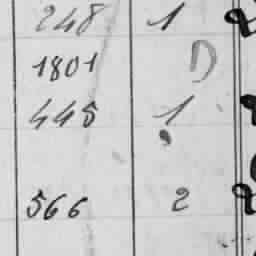 248 1
1801 D
445 1
566 2